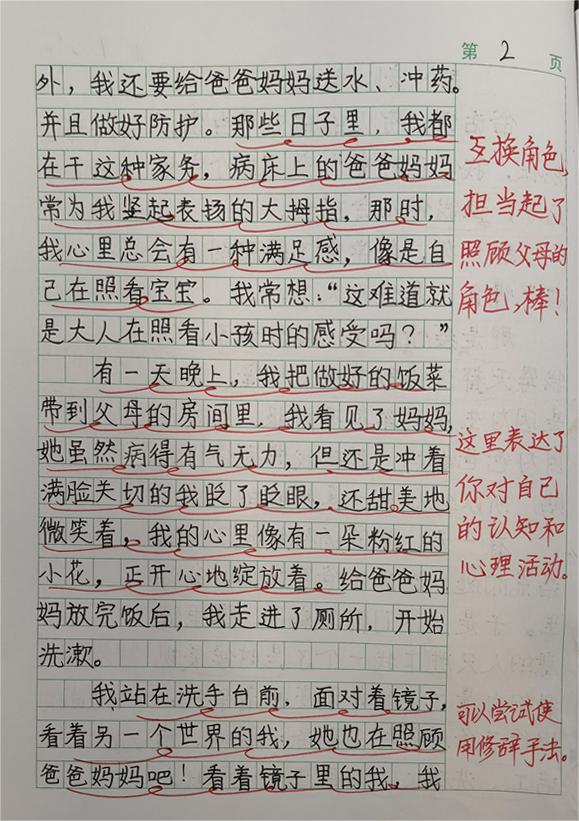 第 2 页
外，我还要给爸爸妈妈送水、冲药。
并且做好防护。那些日子里，我都
在干这种家务，病床上的爸爸妈妈
常为我竖起表扬的大拇指，那时，
我心里总会有一种满足感，像是自
己在照看宝宝。我常想：“这难道就
是大人在照看小孩时的感受吗？”
互换角色，
担当起了
照顾父母的
角色，棒！
有一天晚上，我把做好的饭菜
带到父母的房间里，我看见了妈妈，
她虽然病得有气无力，但还是冲着
满脸关切的我眨了眨眼，还甜美地
微笑着，我的心里像有一朵粉红的
小花，正开心地绽放着。给爸爸妈
妈放完饭后，我走进了厕所，开始
洗漱。
这里表达了
你对自己
的认知和
心理活动。
我站在洗手台前，面对着镜子，
看着另一个世界的我，她也在照顾
爸爸妈妈吧！看着镜子里的我，我
可以尝试使
用修辞手法。